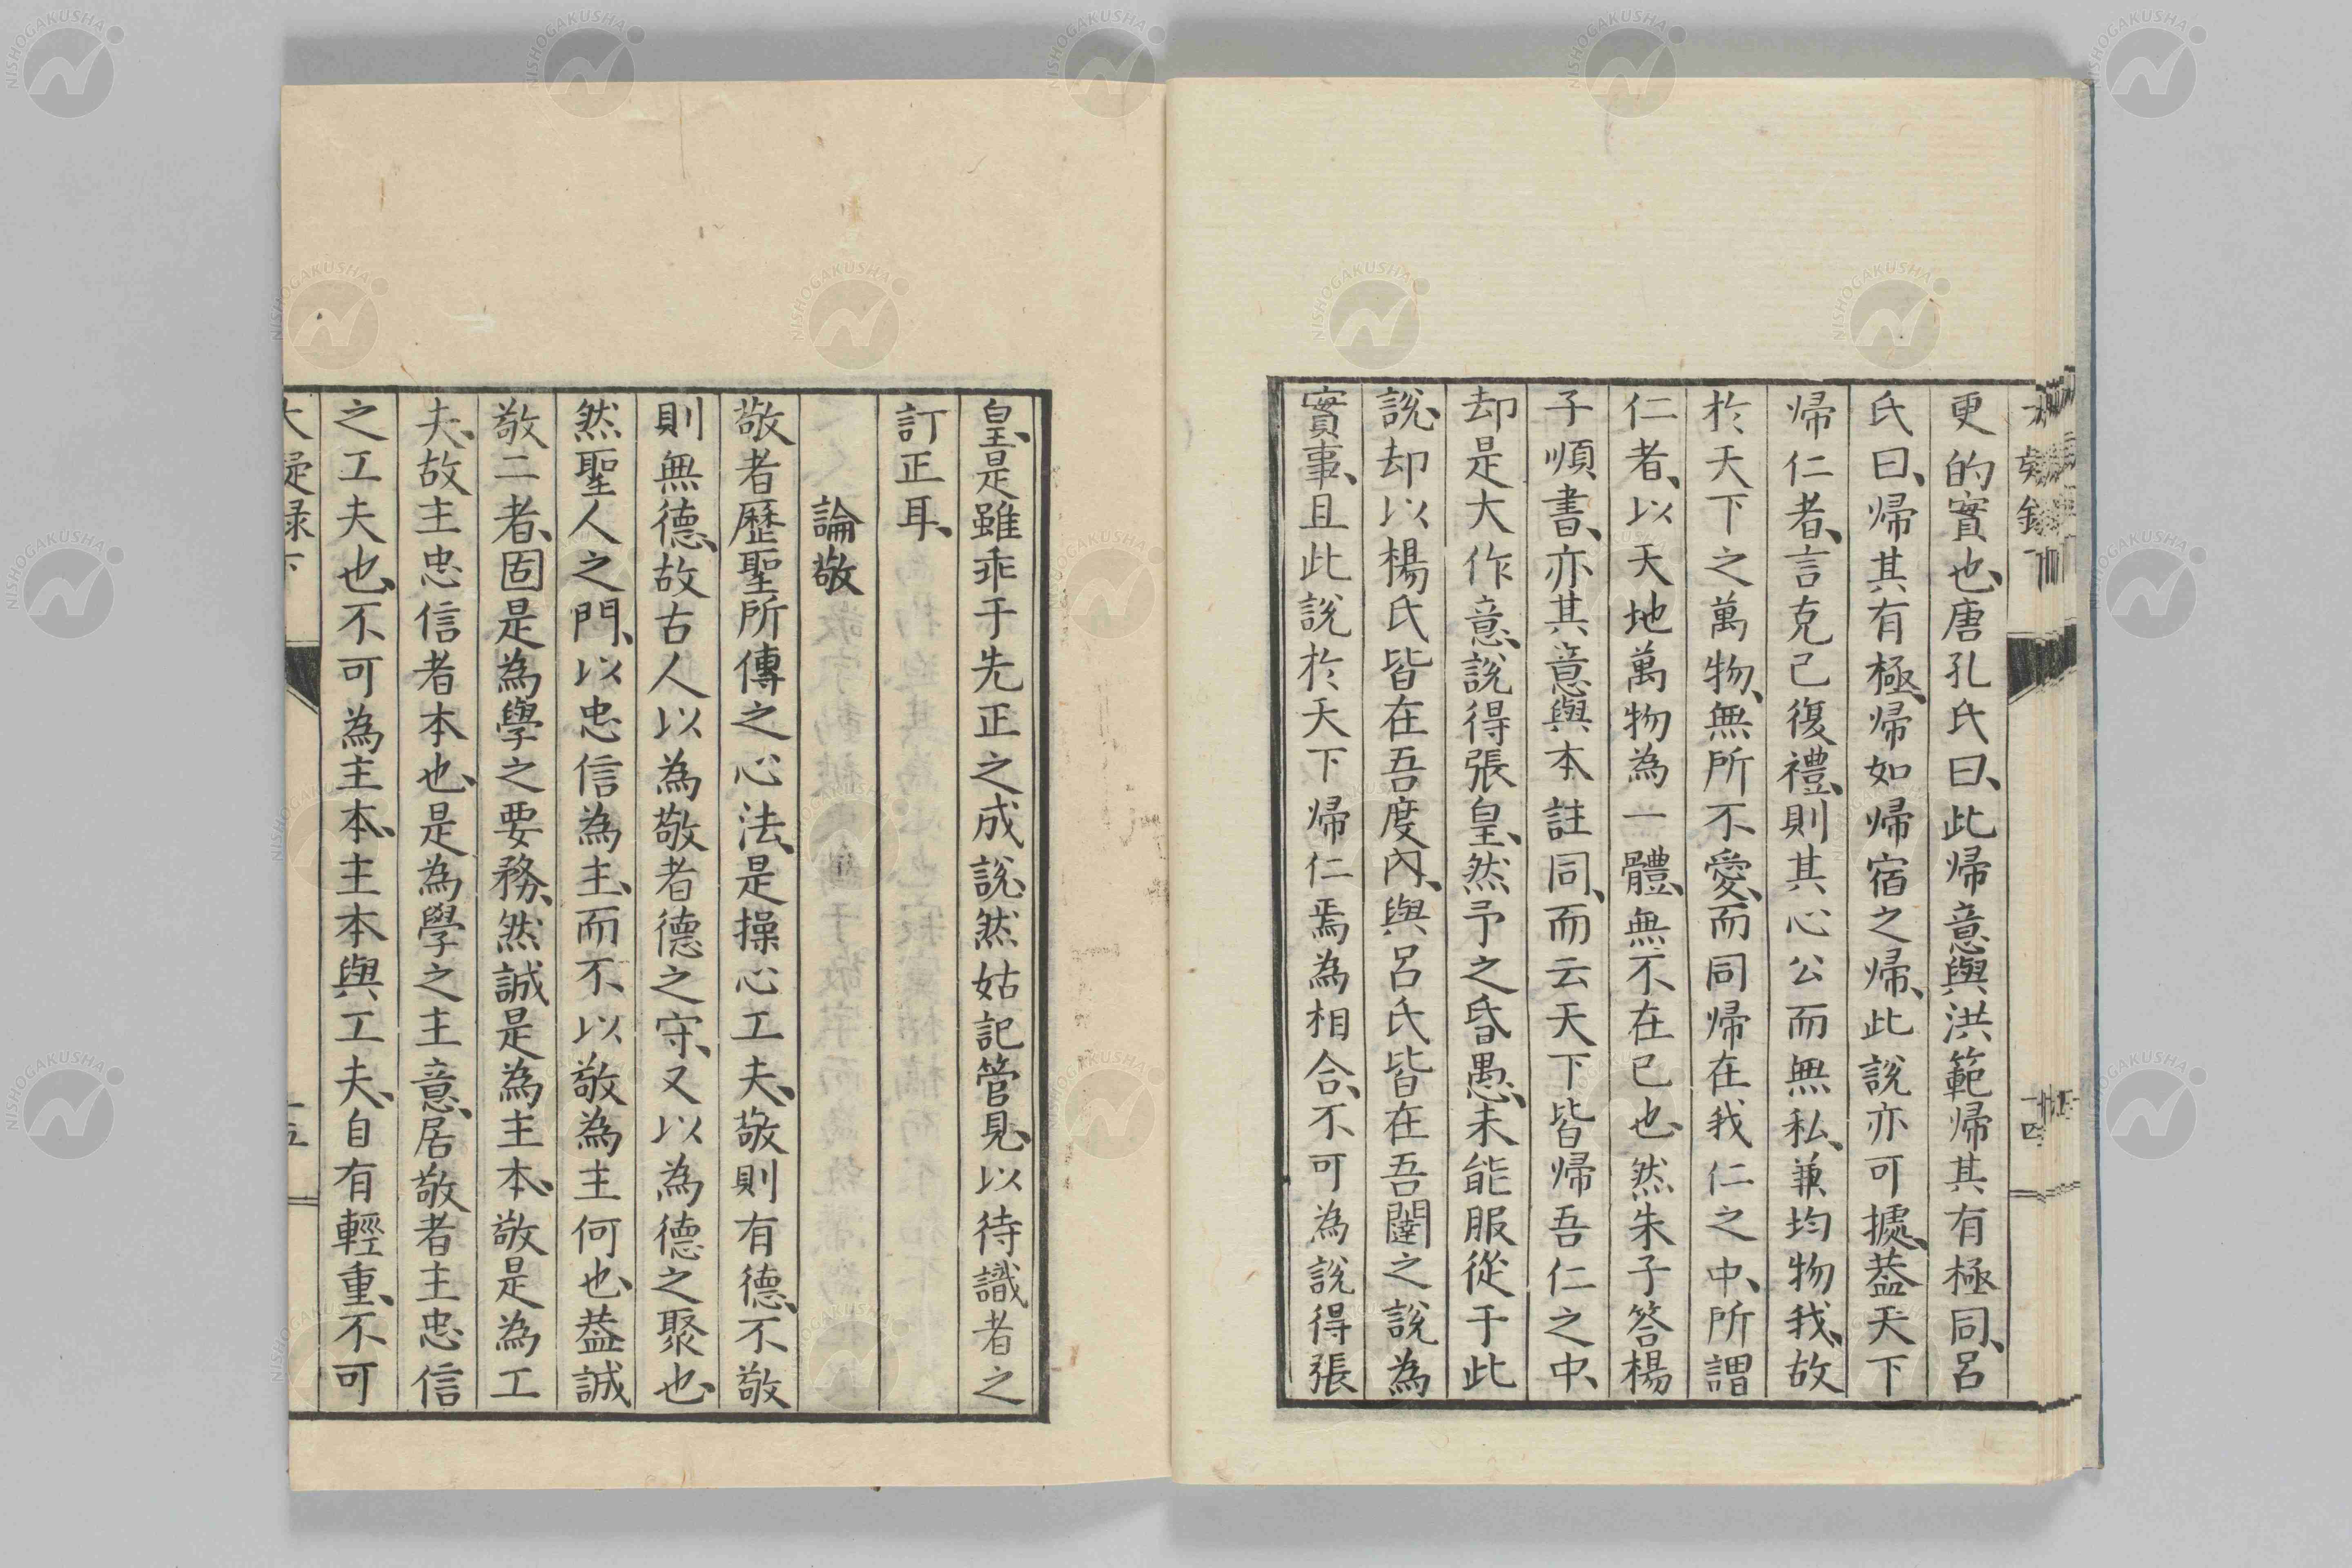 更的實也、唐孔氏曰、此帰意與洪範帰其有極同、呂
氏曰、帰其有極、帰如帰宿之帰、此說亦可據、葢天下
帰仁者、言克己復禮、則其心公而無私、兼均物我、故
於天下之萬物、無所不愛、而同帰在我仁之中、所謂
仁者、以天地萬物為一體、無不在已也、然朱子答楊
子順書、亦其意與本註同、而云天下皆帰吾仁之中、
却是大作意、說得張皇、然予之昏愚、未能服從于此
說、却以楊氏皆在吾度內、與呂氏皆在吾闥之說為
實事、且此說於天下帰仁焉為相合、不可為說得張
皇、是雖乖于先正之成說、然姑記管見、以待識者之
訂正耳、
論敬
敬者歷聖所傳之心法、是操心工夫、敬則有德、不敬
則無德、故古人以為敬者德之守、又以為德之聚也、
然聖人之門、以忠信為主、而不以敬為主何也、葢誠
敬二者、固是為學之要務、然誠是為主本、敬是為工
夫、故主忠信者本也、是為學之主意、居敬者主忠信
之工夫也、不可為主本、主本與工夫、自有輕重、不可
大疑録下
十五
NISHOGAKUSHA